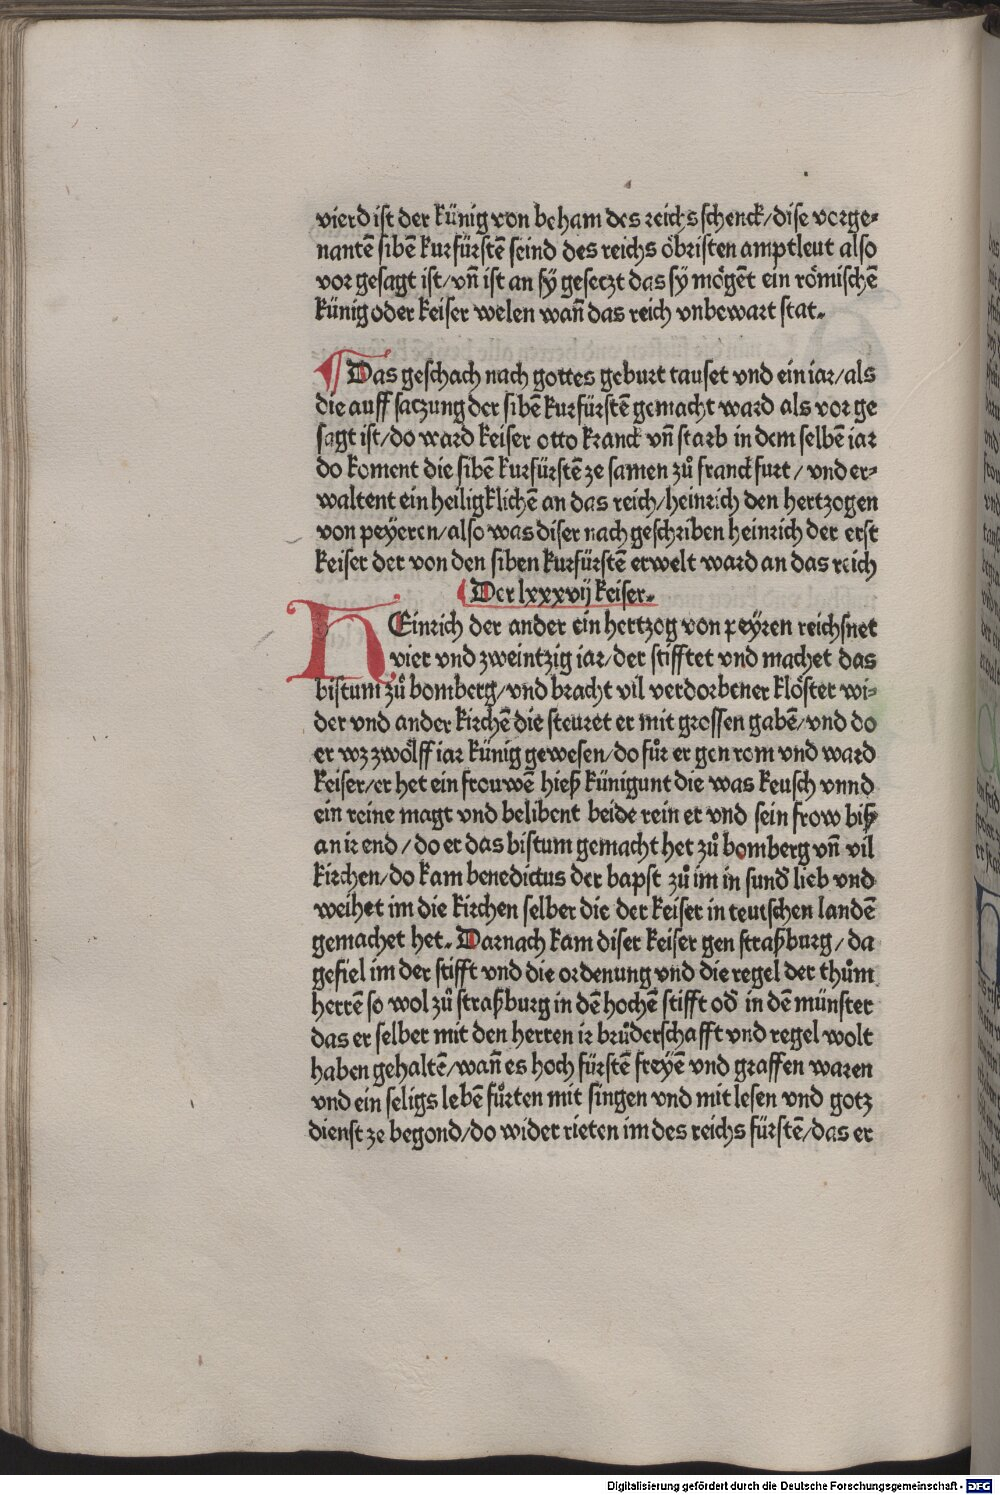 vierd ist der künig von beham des reichs schenck/dise vorge⸗
nantē sibē kurfürstē seind des reichs öbristen amptleut also
vor gesagt ist/vn̄ ist an sÿ gesetzt das sÿ mögēt ein römischē
künig oder keiser welen wan̄ das reich vnbewart stat.
¶ Das geschach nach gottes geburt tauset vnd ein iar/als
die auff satzung der sibē kurfürstē gemacht ward als vor ge
sagt ist/do ward keiser otto kranck vn̄ starb in dem selbē iar
do koment die sibē kurfürstē ze samen zů franckfurt/vnd er⸗
waltent ein heiligklichē an das reich/heinrich den hertzogen
von peÿeren/also was diser nach geschriben heinrich der erst
keiser der von den siben kurfürstē erwelt ward an das reich
Der lxxxvij keiser.
HEinrich der ander ein hertzog von peÿren reichsnet
vier vnd zweintzig iar/der stifftet vnd machet das
bistum zů bomberg/vnd bracht vil verdorbener klöster wi⸗
der vnd ander kirchē die steuret er mit grossen gabē/vnd do
er wz zwölff iar künig gewesen/do fůr er gen rom vnd ward
keiser/er het ein frouwē hieß künigunt die was keusch vnnd
ein reine magt vnd belibent beide rein er vnd sein frow biß
an ir end/do er das bistum gemacht het zů bomberg vn̄ vil
kirchen/do kam benedictus der bapst zů im in sund̄ lieb vnd
weihet im die kirchen selber die der keiser in teutschen landē
gemachet het. Darnach kam diser keiser gen straßburg/da
gefiel im der stifft vnd die ordenung vnd die regel der thům
herrē so wol zů straßburg in dē hochē stifft od̄ in dē münster
das er selber mit den herren ir brůderschafft vnd regel wolt
haben gehaltē/wan̄ es hoch fürstē freyē vnd graffen waren
vnd ein seligs lebē fůrten mit singen vnd mit lesen vnd gotz
dienst ze begond/do wider rieten im des reichs fürstē/das er
Digitalisierung gefördert durch die Deutsche Forschungsgemeinschaft - DFG